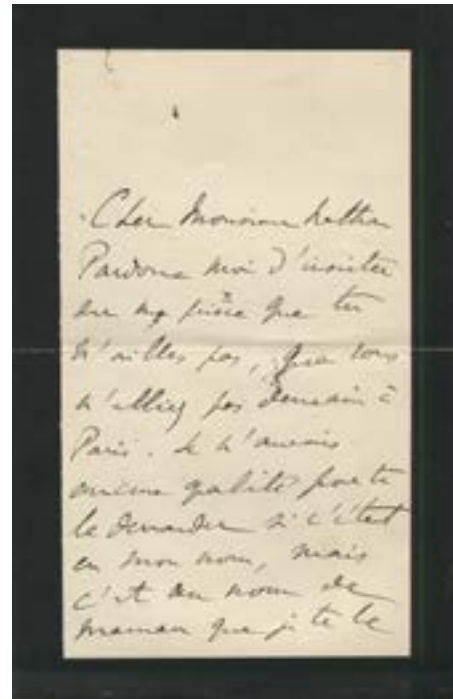 Cher Monsieur
Pardonne moi d'insister
sur ma prière que tu
n'ailles pas, que vous
n'alliez pas demain à
Paris. Je n'aurais
aucune qualité pour te
le demander si c'était
en mon nom, mais
c'est au nom de
maman que je te le